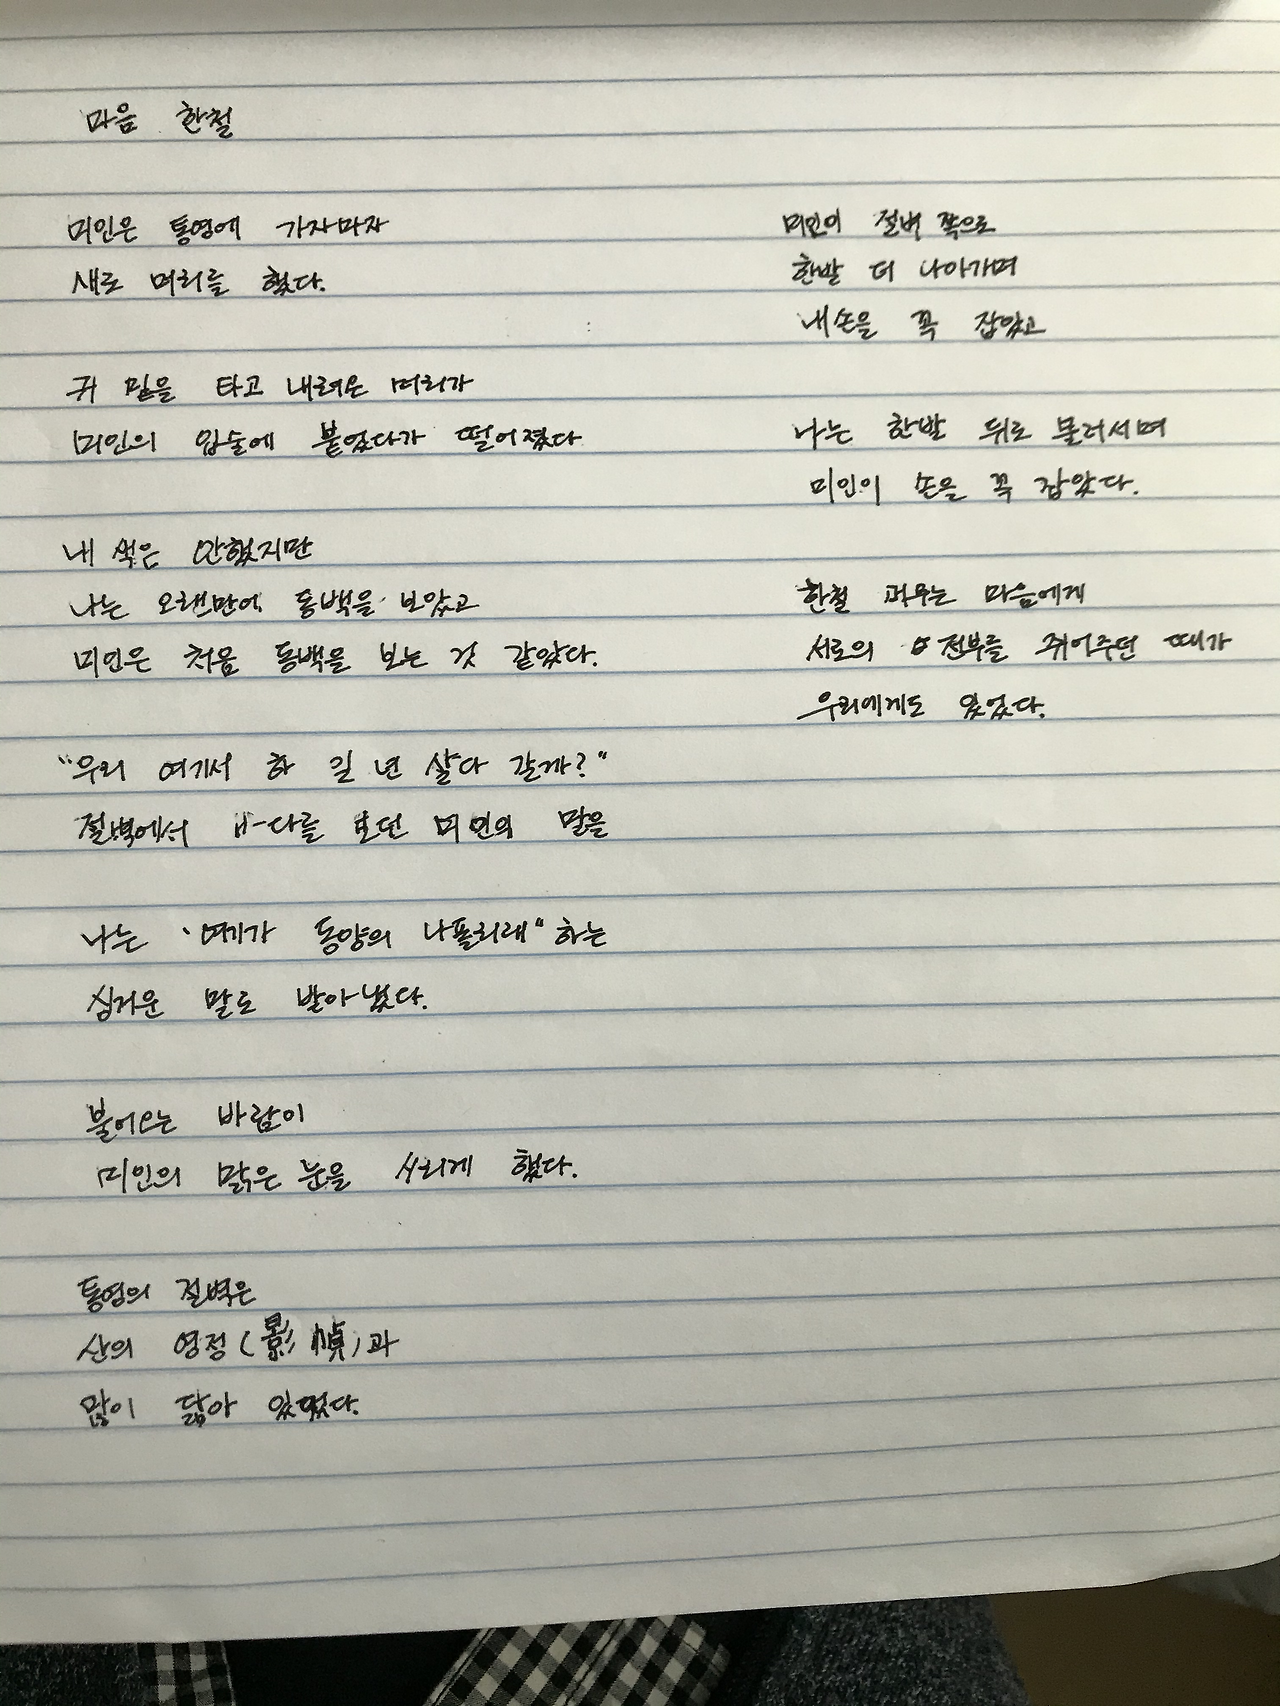 마음 한철
미인은 통영에 가자마자
새로 머리를 했다.
귀 밑을 타고 내려온 머리가
미인의 입술에 붙었다가 떨어졌다
내 색은 안했지만
나는 오랜만에 동백을 보았고
미인은 처음 동백을 보는 것 같았다.
"우리 여기서 하 일 년 살다 갈까?"
절벽에서 바다를 보던 미인의 말을
나는 '여기가 동양의 나폴리래" 하는
싱거운 말로 받아냈다.
불어오는 바람이
미인의 맑은 눈을 시리게 했다.
통영의 절벽은
산의 영정(影幀)과
많이 닮아 있었다.
미인이 절벽 쪽으로
한발 더 나아가며
내 손을 꼭 잡았고
나는 한발 뒤로 물러서며
미인이 손을 꼭 잡았다.
한철 머무는 마음에게
서로의 전부를 쥐어주던 때가
우리에게도 있었다.